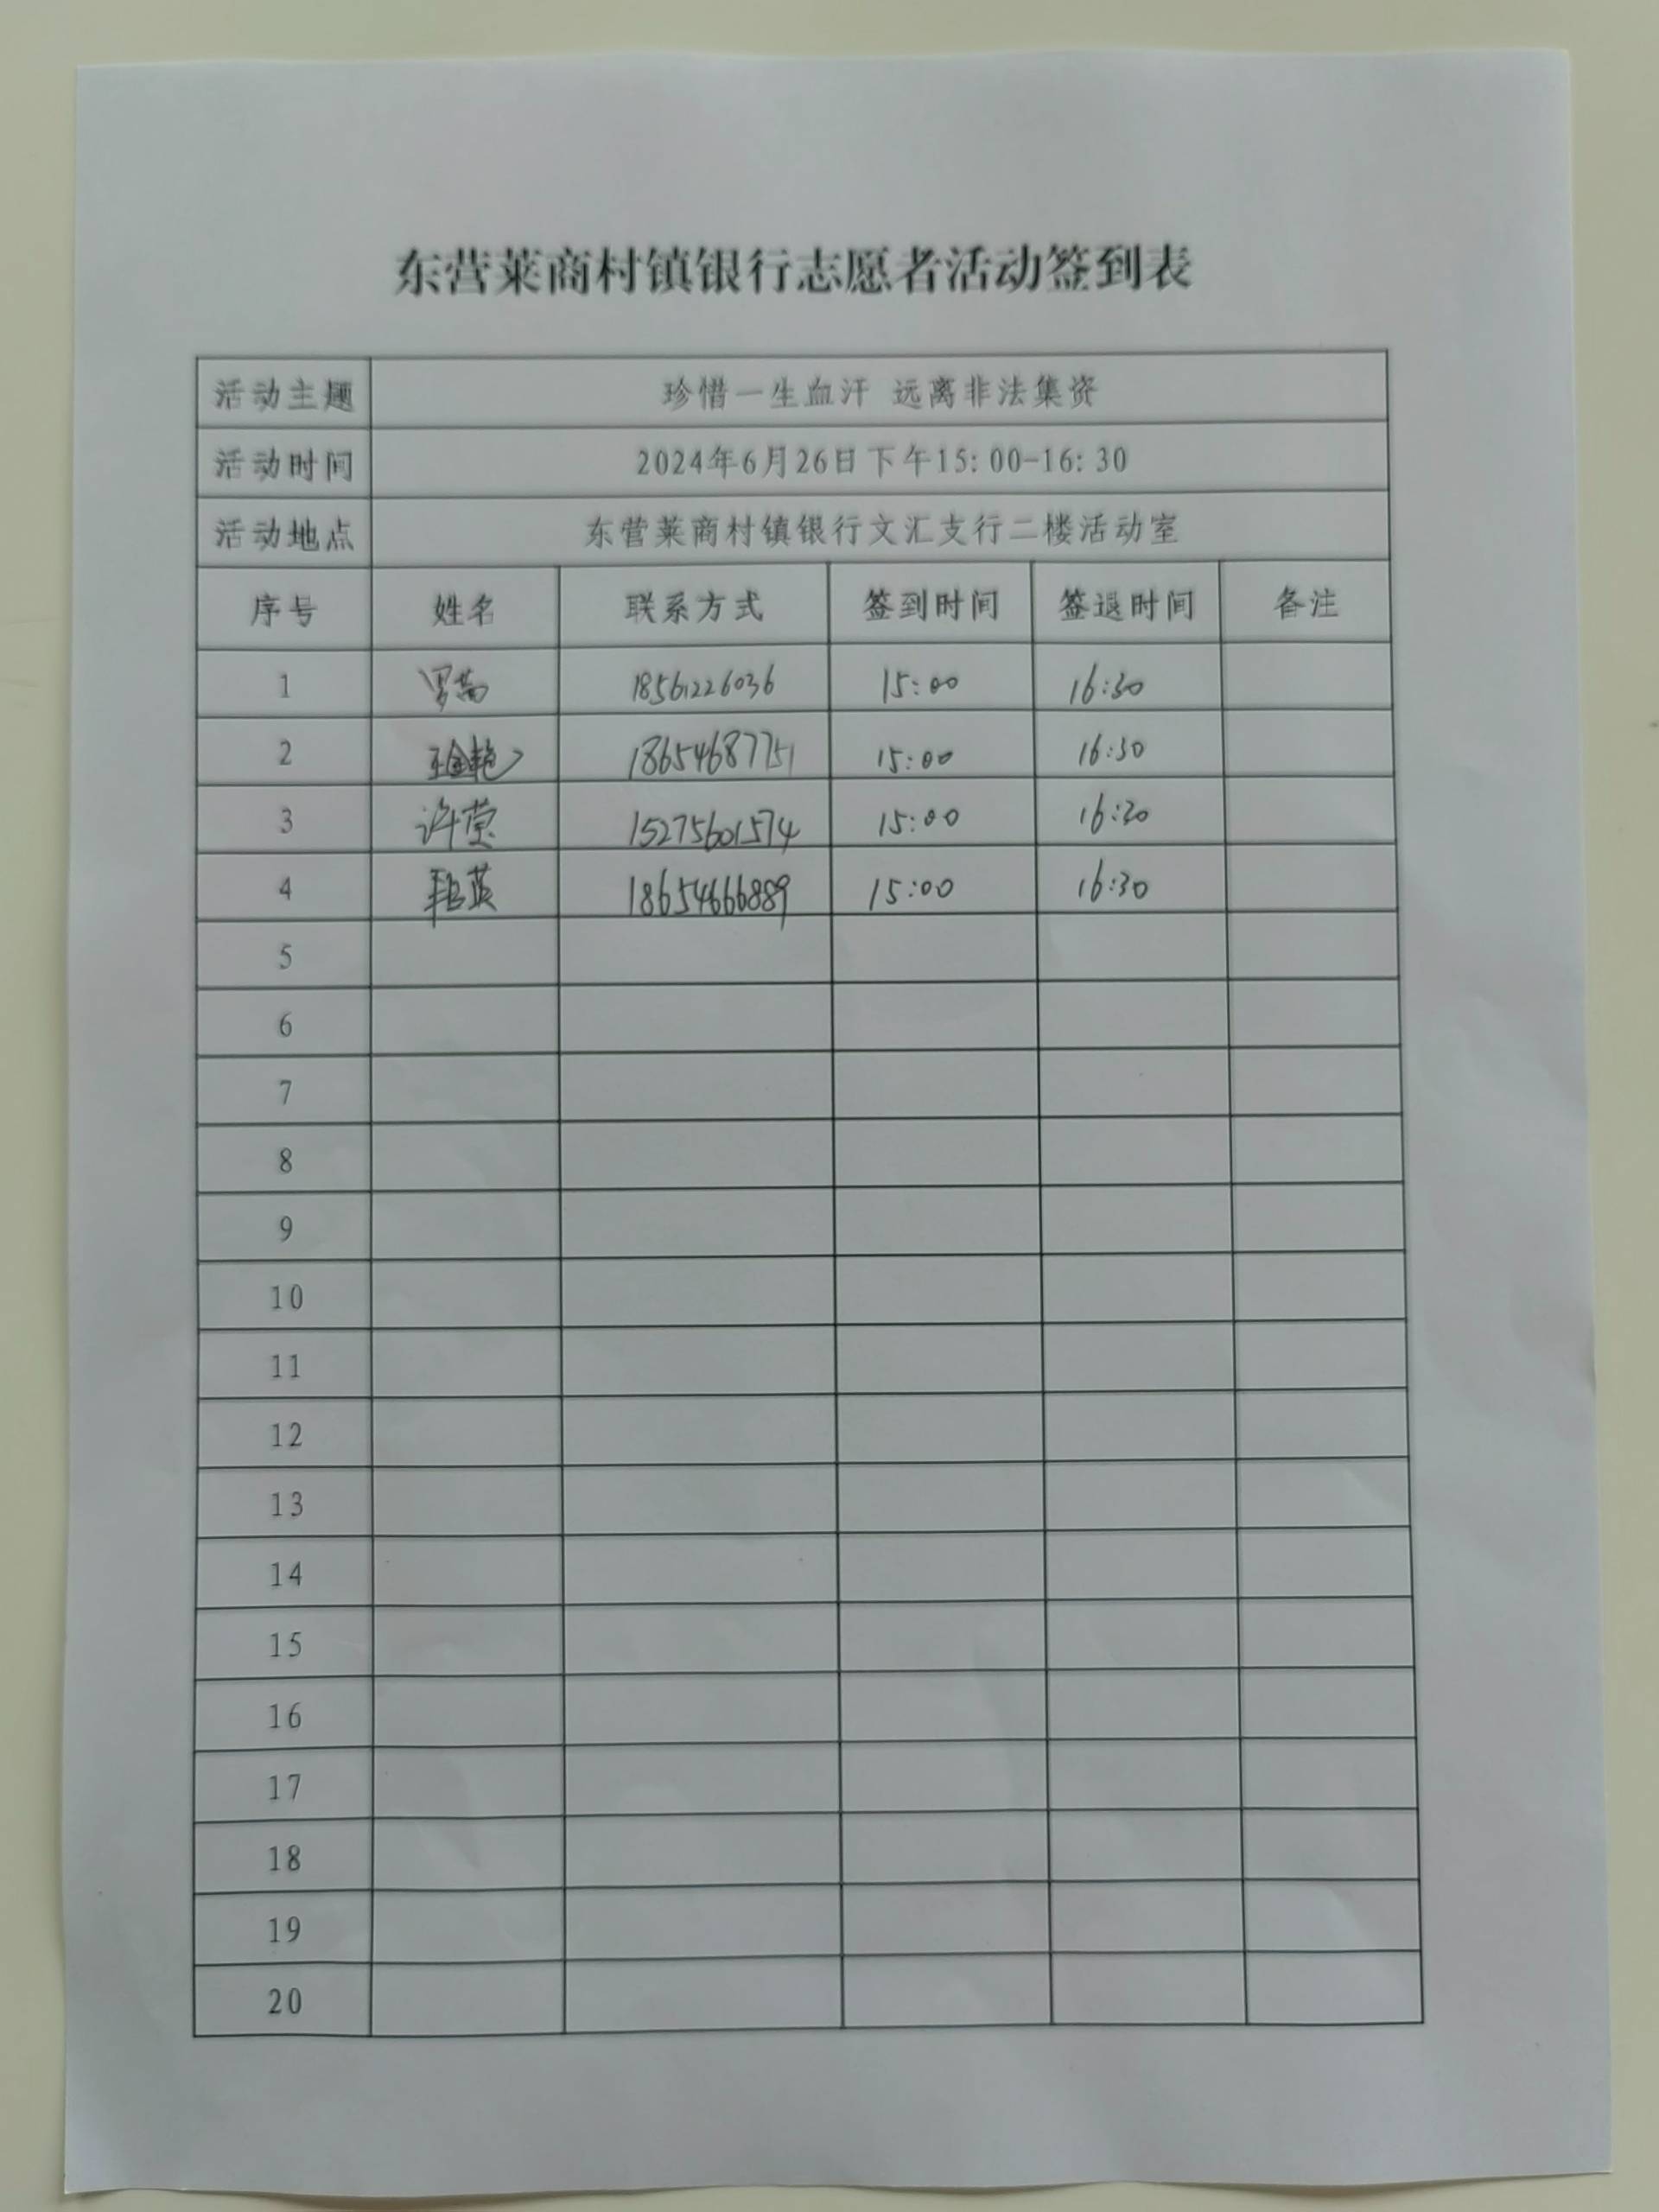 东营莱商村镇银行志愿者活动签到表
活动主题 珍惜一生血汗 远离非法集资
活动时间 2024年6月26日下午15:00-16:30
活动地点 东营莱商村镇银行文汇支行二楼活动室
序号 姓名 联系方式 签到时间 签退时间 备注
1 18561226036 15:00 16:30
2 王金艳 18654687751 15:00 16:30
3 许莹 15275601574 15:00 16:30
4 18654666889 15:00 16:30
5
6
7
8
9
10
11
12
13
14
15
16
17
18
19
20